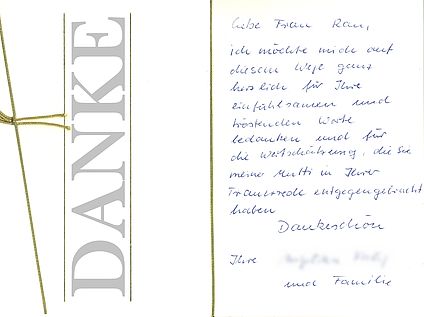 DANKE
Liebe Frau Rau,
ich möchte mich auf
diesem Wege ganz
herzlich für Ihre
einfühlsamen und
tröstenden Worte
bedanken und für
die Wertschätzung, die Sie
meiner Mutti in Ihrer
Trauerrede entgegengebracht
haben
Dankeschön
Ihre
und Familie